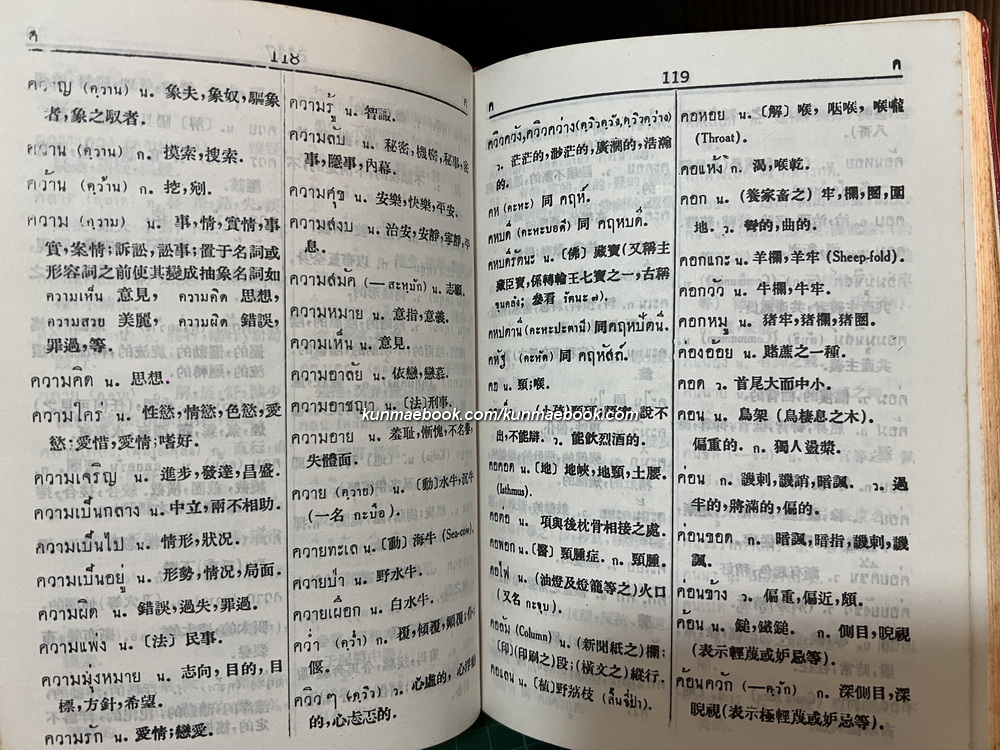 ค
118
ควาญ (คฺวาน) น. 象夫,象奴,驅象
者,象之馭者.
ควาน (คฺวาน) ก. 摸索,搜索.
คว้าน (คฺว้าน) ก. 挖,剜.
ความ (คฺวาม) น. 事,情,實情,事
實,案情;訴訟,訟事;置于名詞或
形容詞之前使其變成抽象名詞如
ความเห็น 意見, ความคิด 思想,
ความสวย 美麗, ความผิด 錯誤,
罪過,等.
ความคิด น. 思想.
ความใคร่ น. 性慾,情慾,色慾,愛
慾;愛惜,愛情;嗜好.
ความเจริญ น. 進步,發達,昌盛.
ความเป็นกลาง น. 中立,兩不相助.
ความเป็นไป น. 情形,狀况.
ความเป็นอยู่ น. 形勢,情况,局面.
ความผิด น. 錯誤,過失,罪過.
ความแพ่ง น. 〔法〕民事.
ความมุ่งหมาย น. 志向,目的,目
標,方針,希望.
ความรัก น. 愛情;戀愛.
ความรู้ น. 智識.
ความลับ น. 秘密,機密,秘事,密
事,隱事,內幕.
ความศุข น. 安樂,快樂,平安.
ความสงบ น. 治安,安靜,寧靜,平
息.
ความสมัค (— สะหฺมัก) น. 志願.
ความหมาย น. 意指,意義.
ความเห็น น. 意見.
ความอาลัย น. 依戀,戀慕.
ความอาชญา น. 〔法〕刑事.
ความอาย น. 羞耻,慚愧,不名譽,
失體面.
ควาย (คฺวาย) น. 〔動〕水牛,沉牛
(一名 กะบือ).
ควายทะเล น. 〔動〕海牛 (Sea-cow).
ควายป่า น. 野水牛.
ควายเผือก น. 白水牛.
คว่ำ (คฺว่ำ) ก. 覆,傾覆,顚覆;仆
偃.
ควิว ๆ (คฺวิว) ว. 心虛的,
的,心忐忑的.
119
ค
ค
ควิวควัง,ควิวคว่าง(คฺวิวคฺวัง,คฺวิวคฺว่าง)
ว. 茫茫的,渺茫的,廣濶的,浩瀚
的.
คห (คะหะ) 同 คฤห์.
คหบดี (คะหะบอดี) 同 คฤหบดี.
คหบดีรัตนะ น. 〔佛〕藏寶(又稱主
藏臣寶,係轉輪王七寶之一,古稱
ขุนคลัง; 參看 รัตนะ ๗).
คหปตานี (คะหะปะตานี) 同คฤหปัตนี.
คหัฐ (คะหัด) 同 คฤหัสถ์.
คอ น. 頸;喉.
說不
出,不能辯. ว. 能飲烈酒的.
คอคอด น. 〔地〕地峽,地頸,土腰.
(Isthmus).
คอต่อ น. 項與後枕骨相接之處.
คอพอก น. 〔醫〕頸腫症. ก. 頸腫.
คอไฟ น. (油燈及燈籠等之)火口
(又名 กะจุบ).
คอลัน (Column) น. (新聞紙之)欄;
〔印〕(印刷之)段;(橫文之)縱行.
คอแลน น. 〔植〕野荔枝 (ลิ้นจี่ป่า).
คอหอย น. 〔解〕喉, 咽喉, 喉嚨
(Throat).
คอแห้ง ก. 渴,喉乾.
คอก น. (養家畜之) 牢,欄,圈,圍
地. ว. 彎的,曲的.
คอกแกะ น. 羊欄,羊牢 (Sheep-fold).
คอกวัว น. 牛欄,牛牢.
คอกหมู น. 猪牢,猪欄,猪圈.
ค่องอ้อย น. 賭蔗之一種.
คอด ว. 首尾大而中小.
คอน น. 鳥架 (鳥棲息之木).
偏重的. ก. 獨人盪槳.
ค่อน ก. 譏刺,譏誚,暗諷. ว. 過
半的,將滿的,偏的.
ค่อนขอด ก. 暗諷,暗指,譏刺,譏
諷.
ค่อนข้าง ว. 偏重,偏近,頗.
ค้อน น. 鎚,鐵鎚. ก. 側目,睨視
(表示輕蔑或妒忌等).
ค้อนควัก (—คฺวัก) ก. 深側目,深
睨視(表示極輕蔑或妒忌等).
kunmaebook.com/kunmaebook.com